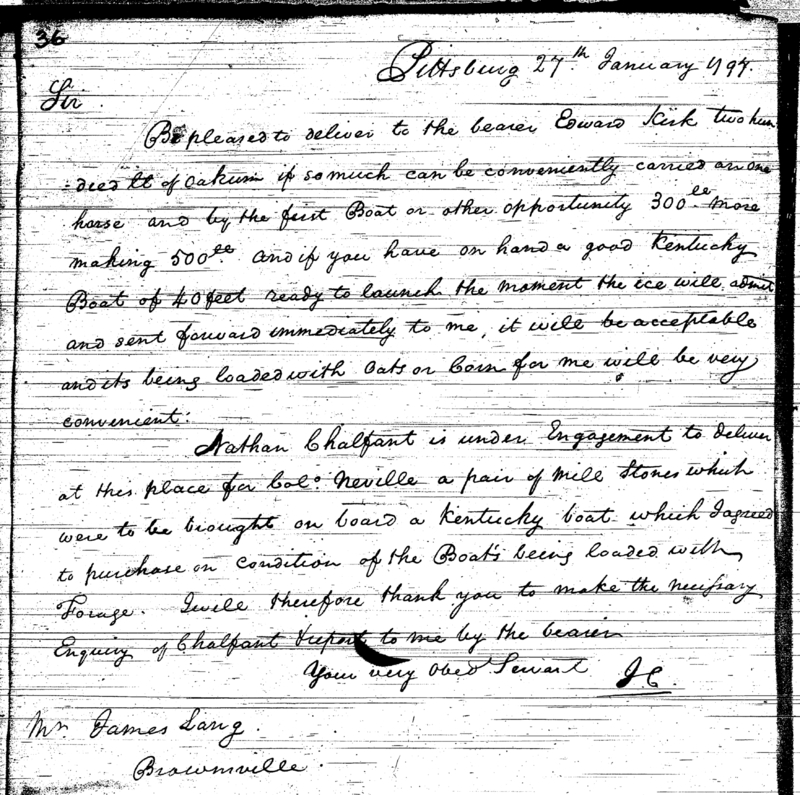 36
Pittsburg 27th January 1797.
Sir
Be pleased to deliver to the bearer Edward Kirk two hun
:dred lt of Oakum if so much can be conveniently carried on one
horse and by the first Boat or other opportunity 300 more
making 500 and if you have on hand a good Kentucky
Boat of 40 feet ready to launch the moment the ice will admit
and sent forward immediately to me, it will be acceptable
and its being loaded with Oats or Corn for me will be very
convenient:
Nathan Chalfant is under Engagement to deliver
at this place for Colo. Neville a pair of Mill Stones which
were to be brought on board a Kentucky boat which I agreed
to purchase on condition of the Boat's being loaded with
Forage. I will therefore thank you to make the necessary
Enquiry of Chalfant & report to me by the bearer
Your very Obed Servant J C.
Mr James Lang.
Brownsville.